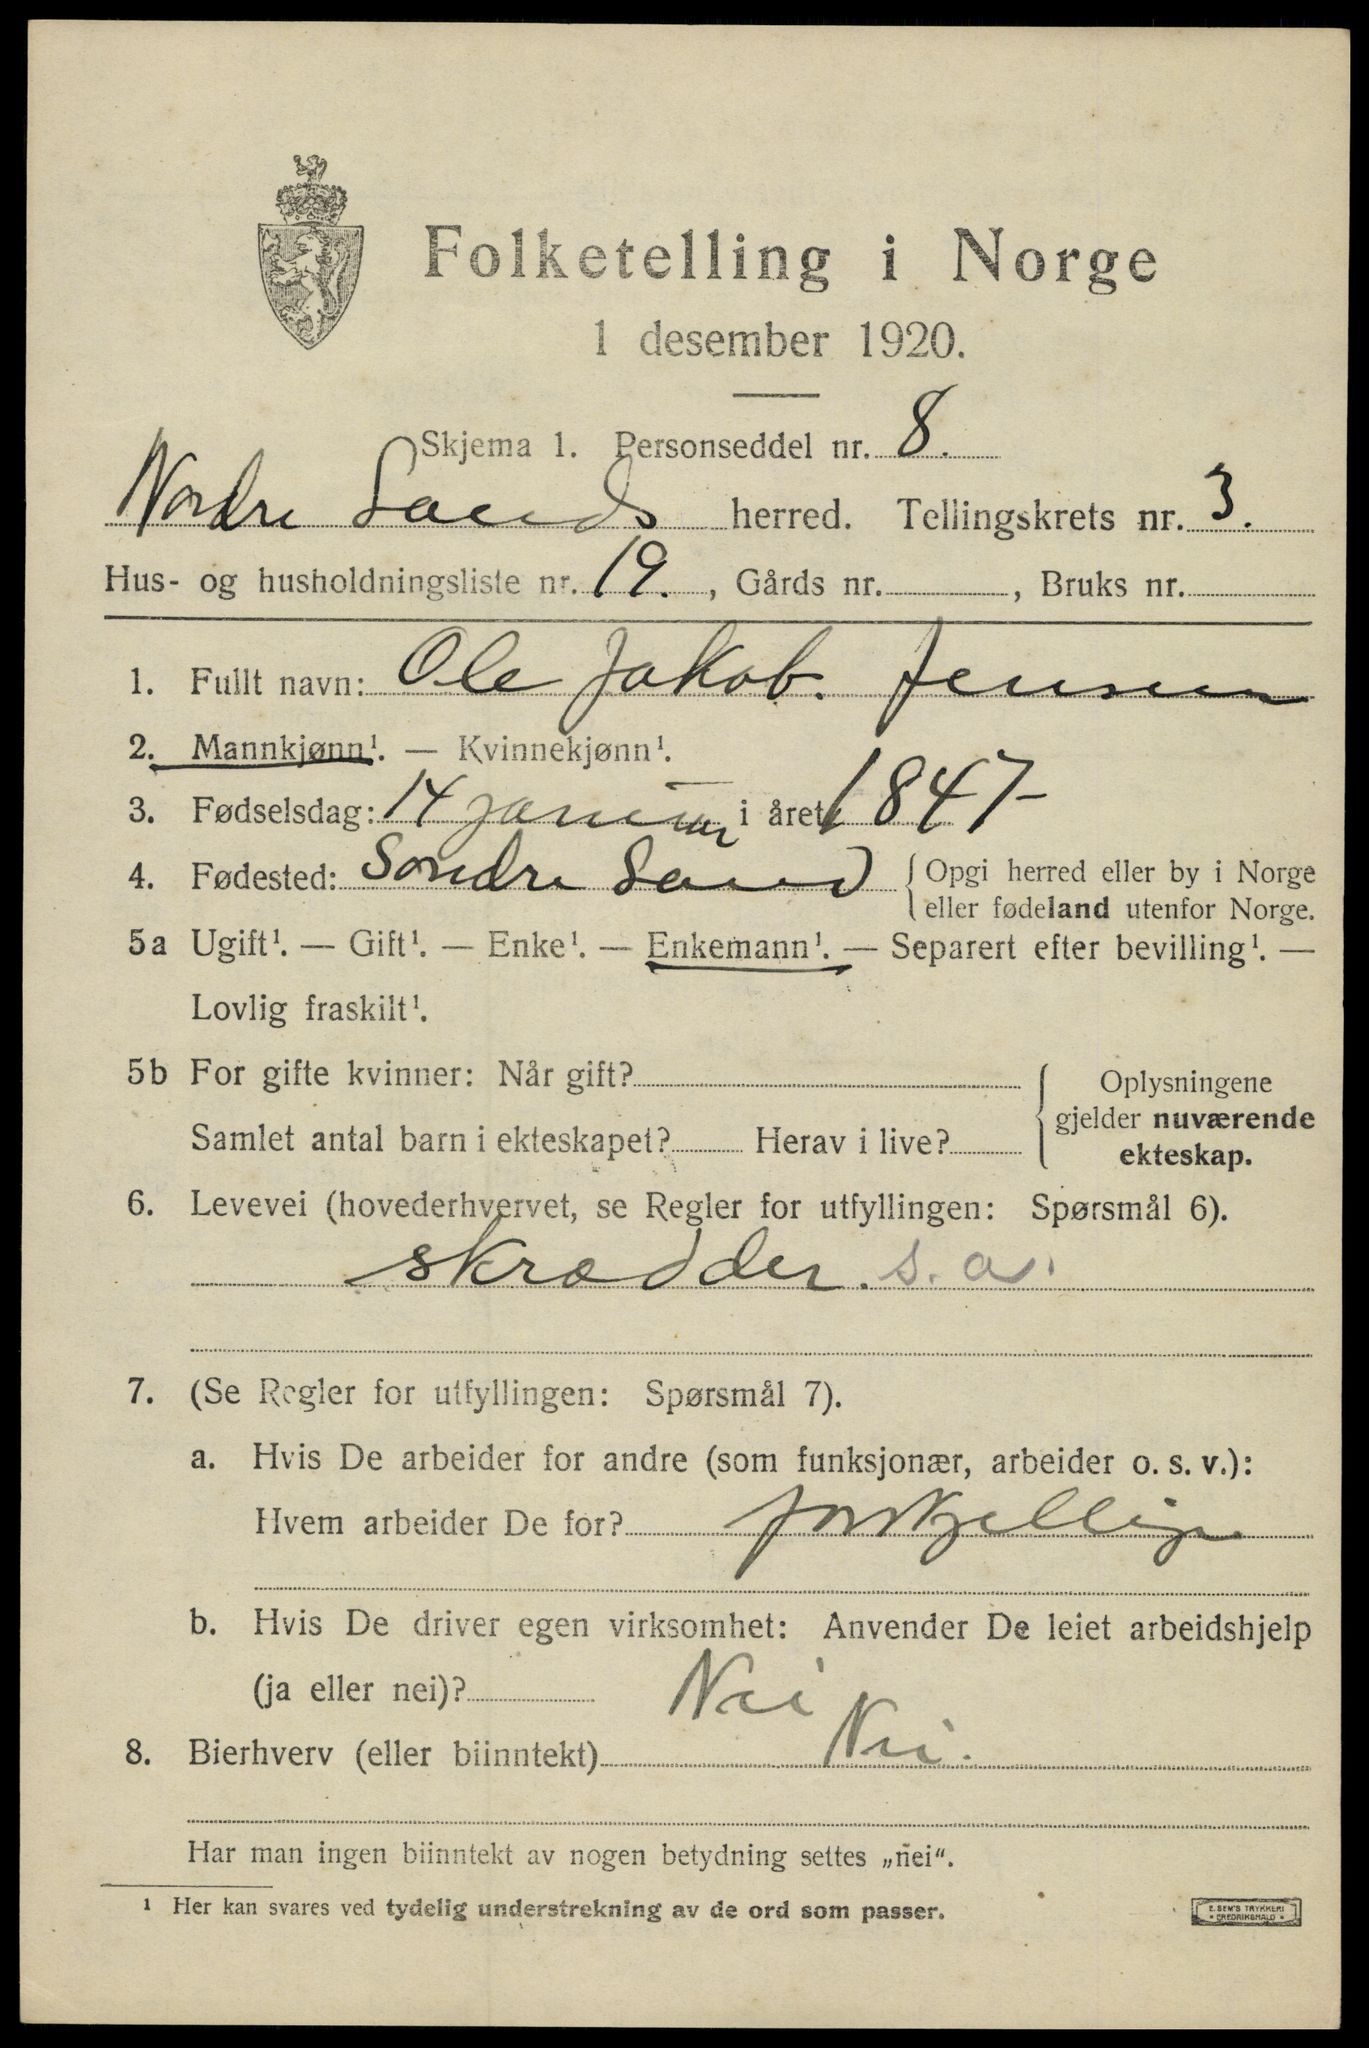 Folketelling i Norge
1 desember 1920.
Skjema 1. Personseddel nr. 8.
Nordre Lands herred. Tellingskrets nr. 3.
Hus- og husholdningsliste nr. 19., Gårds nr. , Bruks nr.
1. Fullt navn: Ole Jakob. Jensen
2. Mannkjønn¹. — Kvinnekjønn¹.
3. Fødselsdag: 14 januar i året 1847-
4. Fødested: Sondre Land {Opgi herred eller by i Norge
eller fødeland utenfor Norge.
5a Ugift¹. — Gift¹. — Enke¹. — Enkemann¹. — Separert efter bevilling¹. —
Lovlig fraskilt¹.
5b For gifte kvinner: Når gift? { Oplysningene
gjelder nuværende
Samlet antal barn i ekteskapet? Herav i live?
ekteskap.
6. Levevei (hovederhvervet, se Regler for utfyllingen: Spørsmål 6).
skrædder. s. a.
7. (Se Regler for utfyllingen: Spørsmål 7).
a. Hvis De arbeider for andre (som funksjonær, arbeider o. s. v.):
Hvem arbeider De for? forskjellige
b. Hvis De driver egen virksomhet: Anvender De leiet arbeidshjelp
(ja eller nei)? Nei
8. Bierhverv (eller biinntekt) Nei.
Har man ingen biinntekt av nogen betydning settes „nei“.
¹ Her kan svares ved tydelig understrekning av de ord som passer.
E. SEM'S TRYKKERI
* FREDRIKSHALD *